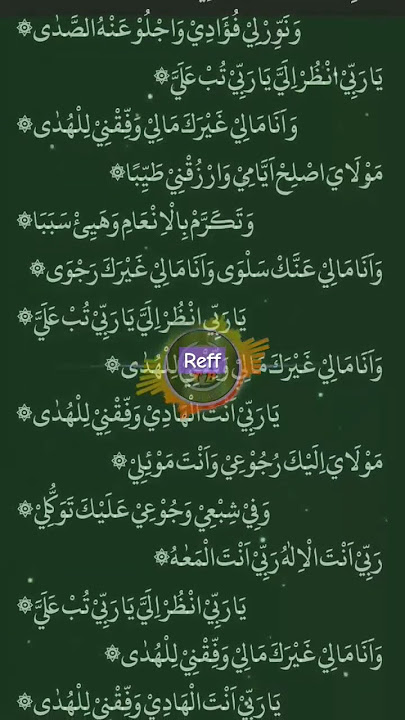 وَنَوِّرْلِيْ فُؤَادِيْ وَاجْلُوْ عَنْهُ الصَّدٰى ۞
يَارَبِّيْ انْظُرْ اِلَيَّ يَارَبِّيْ تُبْ عَلَيَّ ۞
وَاَنَامَالِيْ غَيْرَكَ مَالِيْ وَفِّقْنِيْ لِلْهُدٰى ۞
مَوْلَايَ اصْلِحْ اَيَّامِيْ وَارْزُقْنِيْ طَيِّبًا ۞
وَتَكَرَّمْ بِالْاِنْعَامِ وَهَيِّئْ سَبَبَا ۞
وَاَنَامَالِيْ عَنَّكْ سَلْوٰى وَاَنَامَالِيْ غَيْرَكَ رَجْوٰى ۞
يَارَبِّيْ انْظُرْ اِلَيَّ يَارَبِّيْ تُبْ عَلَيَّ ۞
Reff
وَاَنَامَالِيْ غَيْرَكَ مَالِيْ لِلْهُدٰى ۞
يَارَبِّيْ اَنْتَ الْهَادِيْ وَفِّقْنِيْ لِلْهُدٰى ۞
مَوْلَايَ اِلَيْكَ رُجُوْعِيْ وَاَنْتَ مَوْئِلِيْ ۞
وَفِيْ شِبْعِيْ وَجُوْعِيْ عَلَيْكَ تَوَكُّلِيْ ۞
رَبِّيْ اَنْتَ الْاِلٰهُ رَبِّيْ اَنْتَ الْمَعْهُ ۞
يَارَبِّيْ انْظُرْ اِلَيَّ يَارَبِّيْ تُبْ عَلَيَّ ۞
وَاَنَامَالِيْ غَيْرَكَ مَالِيْ وَفِّقْنِيْ لِلْهُدٰى ۞
يَارَبِّيْ اَنْتَ الْهَادِيْ وَفِّقْنِيْ لِلْهُدٰى ۞